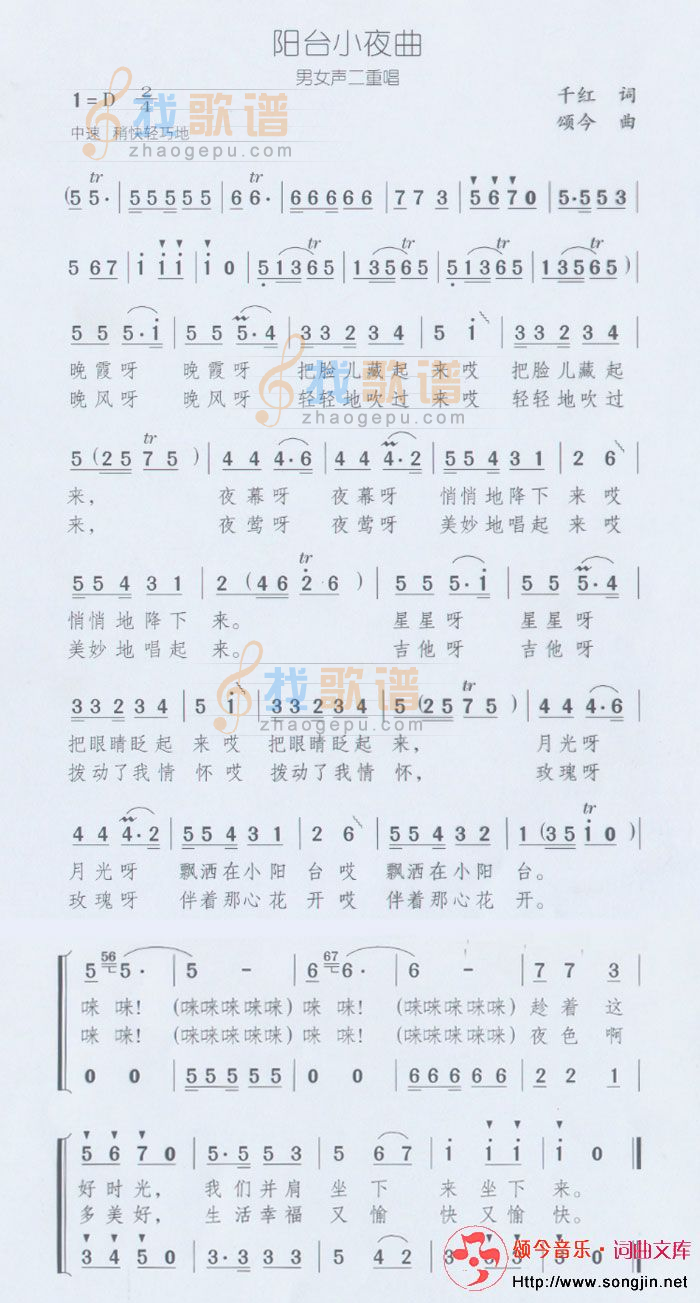 阳台小夜曲
男女声二重唱
1=D 2/4
千红 词
颂今 曲
中速 稍快轻巧地
找歌谱
zhaogepu.com
(5 5· | 5 5 5 5 5 | 6 6· | 6 6 6 6 6 | 7 7 3 | 5 6 7 0 | 5·5 5 3 |
5 6 7 | i i i | i 0 | 5 1 3 6 5 | 1 3 5 6 5 | 5 1 3 6 5 | 1 3 5 6 5 )
5 5 5·i | 5 5 5·4 | 3 3 2 3 4 | 5 i | 3 3 2 3 4 |
晚霞呀 晚霞呀 把脸儿藏起 来哎 把脸儿藏起
晚风呀 晚风呀 轻轻地吹过 来哎 轻轻地吹过
找歌谱
zhaogepu.com
5 ( 2 5 7 5 ) | 4 4 4·6 | 4 4 4·2 | 5 5 4 3 1 | 2 6 |
来, 夜幕呀 夜幕呀 悄悄地降下 来哎
来, 夜莺呀 夜莺呀 美妙地唱起 来哎
5 5 4 3 1 | 2 ( 4 6 2 6 ) | 5 5 5·i | 5 5 5·4 |
悄悄地降下 来。 星星呀 星星呀
美妙地唱起 来。 吉他呀 吉他呀
找歌谱
zhaogepu.com
3 3 2 3 4 | 5 i | 3 3 2 3 4 | 5 ( 2 5 7 5 ) | 4 4 4·6 |
把眼睛眨起 来哎 把眼睛眨起 来, 月光呀
拨动了我情 怀哎 拨动了我情 怀, 玫瑰呀
4 4 4·2 | 5 5 4 3 1 | 2 6 | 5 5 4 3 2 | 1 ( 3 5 i 0 ) |
月光呀 飘洒在小阳 台哎 飘洒在小阳 台。
玫瑰呀 伴着那心花 开哎 伴着那心花 开。
5 56 5· | 5 - | 6 67 6· | 6 - | 7 7 3 |
咪 咪! (咪咪咪咪咪) 咪 咪! (咪咪咪咪咪) 趁着这
咪 咪! (咪咪咪咪咪) 咪 咪! (咪咪咪咪咪) 夜色啊
0 0 | 5 5 5 5 5 | 0 0 | 6 6 6 6 6 | 2 2 1 |
5 6 7 0 | 5·5 5 3 | 5 6 7 | i i i | i 0 ‖
好时光, 我们并肩 坐下 来坐下 来。
多美好, 生活幸福 又愉 快又愉 快。
3 4 5 0 | 3·3 3 3 | 5 4 2
颂今音乐·词曲文库
Http://www.songjin.net